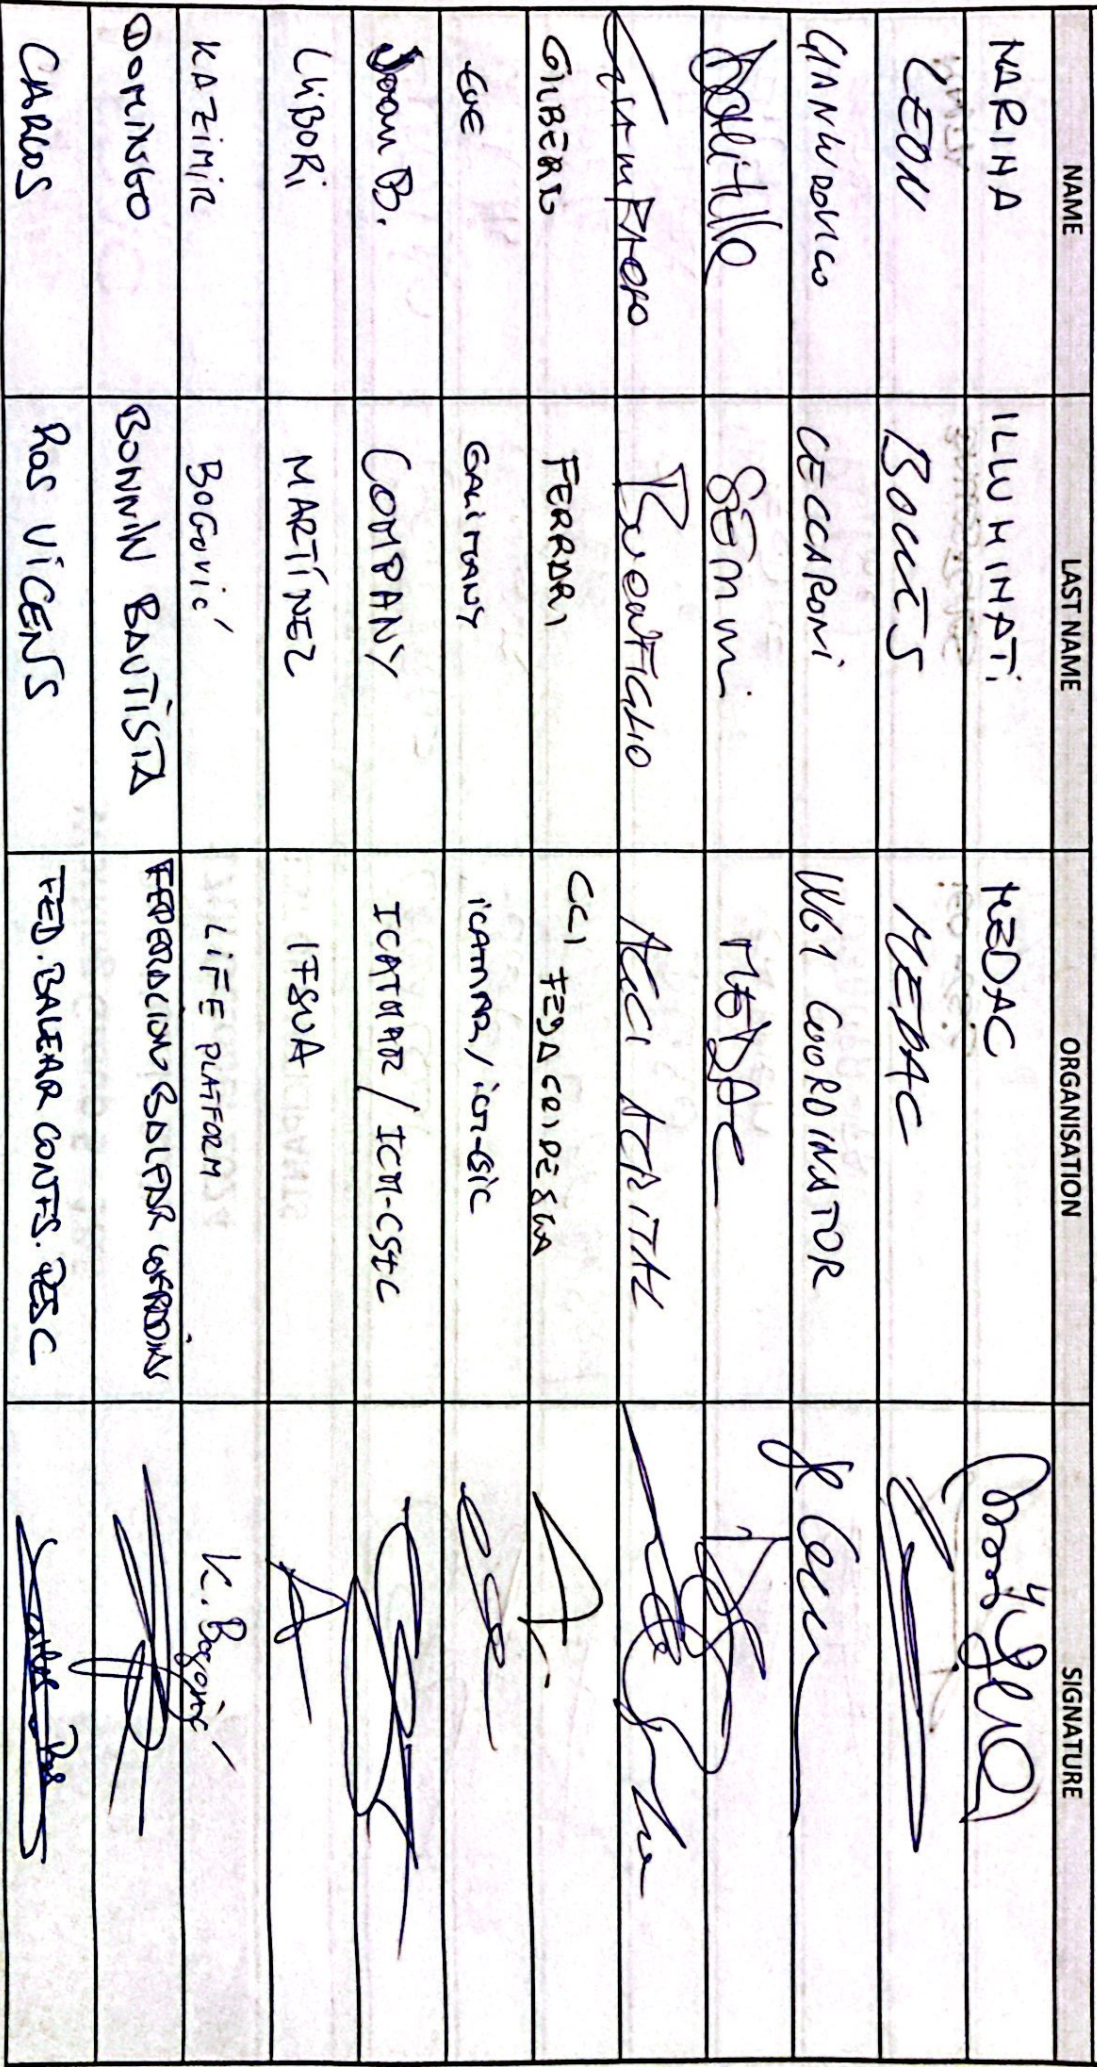 NAME LAST NAME ORGANISATION SIGNATURE
MARINA ILLUMINATI MEDAC
LEON BOUTS MEDAC
GIANLUDOVICO CECCARONI WG1 COORDINATOR
MEDAC
BUONFIGLIO AGCI AGRITAL
GILBERTO FERRARI CCI FEDAGRIPESCA
EVE GALIMANY ICATMAR / ICM-CSIC
Joan B. COMPANY ICATMAR / ICM-CSIC
LIBORI MARTÍNEZ IFSUA
KAZIMIR BOGOVIĆ LIFE PLATFORM K. Bogović
DOMINGO BONNIN BAUTISTA FEDERACION BALEAR COFRADIAS
CARLOS ROS VICENS FED. BALEAR CONFS. PESC